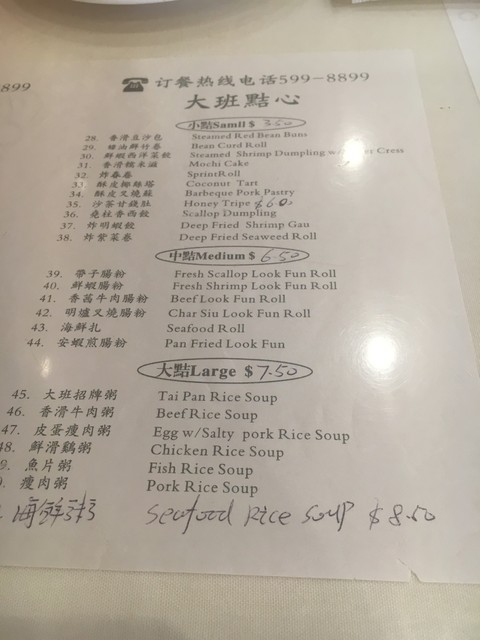 8899
☎ 订餐热线电话599-8899
大班點心
小點Samll $ 3.50
28. 香滑豆沙包 Steamed Red Bean Buns
29. 豉油鮮竹卷 Bean Curd Roll
30. 鮮蝦西洋菜餃 Steamed Shrimp Dumpling w/ Cress
31. 香滑糯米滋 Mochi Cake
32. 炸春卷 SprintRoll
33. 酥皮椰絲塔 Coconut Tart
34. 酥皮叉燒酥 Barbeque Pork Pastry
35. 沙茶甘錢肚 Honey Tripe $6.00
36. 堯柱香西餃 Scallop Dumpling
37. 炸明蝦餃 Deep Fried Shrimp Gau
38. 炸紫菜卷 Deep Fried Seaweed Roll
中點Medium $ 6.50
39. 帶子腸粉 Fresh Scallop Look Fun Roll
40. 鮮蝦腸粉 Fresh Shrimp Look Fun Roll
41. 香茜牛肉腸粉 Beef Look Fun Roll
42. 明爐叉燒腸粉 Char Siu Look Fun Roll
43. 海鮮扎 Seafood Roll
44. 安蝦煎腸粉 Pan Fried Look Fun
大點Large $ 7.50
45. 大班招牌粥 Tai Pan Rice Soup
46. 香滑牛肉粥 Beef Rice Soup
47. 皮蛋瘦肉粥 Egg w/Salty pork Rice Soup
48. 鮮滑鷄粥 Chicken Rice Soup
9. 魚片粥 Fish Rice Soup
. 瘦肉粥 Pork Rice Soup
海鲜粥 Seafood Rice Soup $8.50